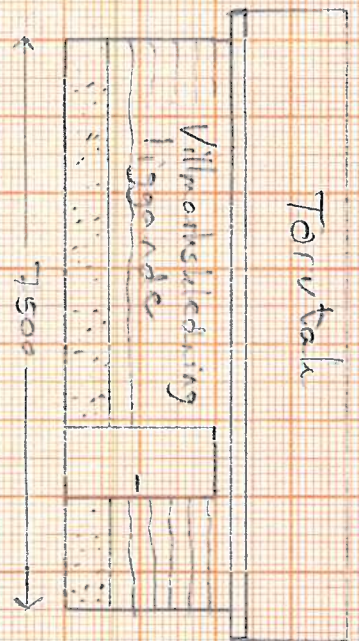 Torvtak
Villmarkskledning
liggande
7500